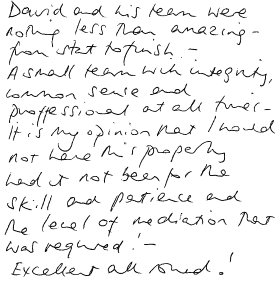 David and his team were
nothing less than amazing -
from start to finish -
A small team with integrity,
common sense and
proffessional at all times -
It is my opinion that I would
not have this property
had it not been for the
skill and patience and
the level of mediation that
was required! -
Excellent all round!